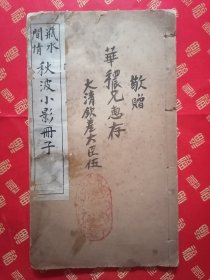 敬贈
華穠兄惠存
大清欽差大臣伍
瓶水
閒情
秋波小影冊子